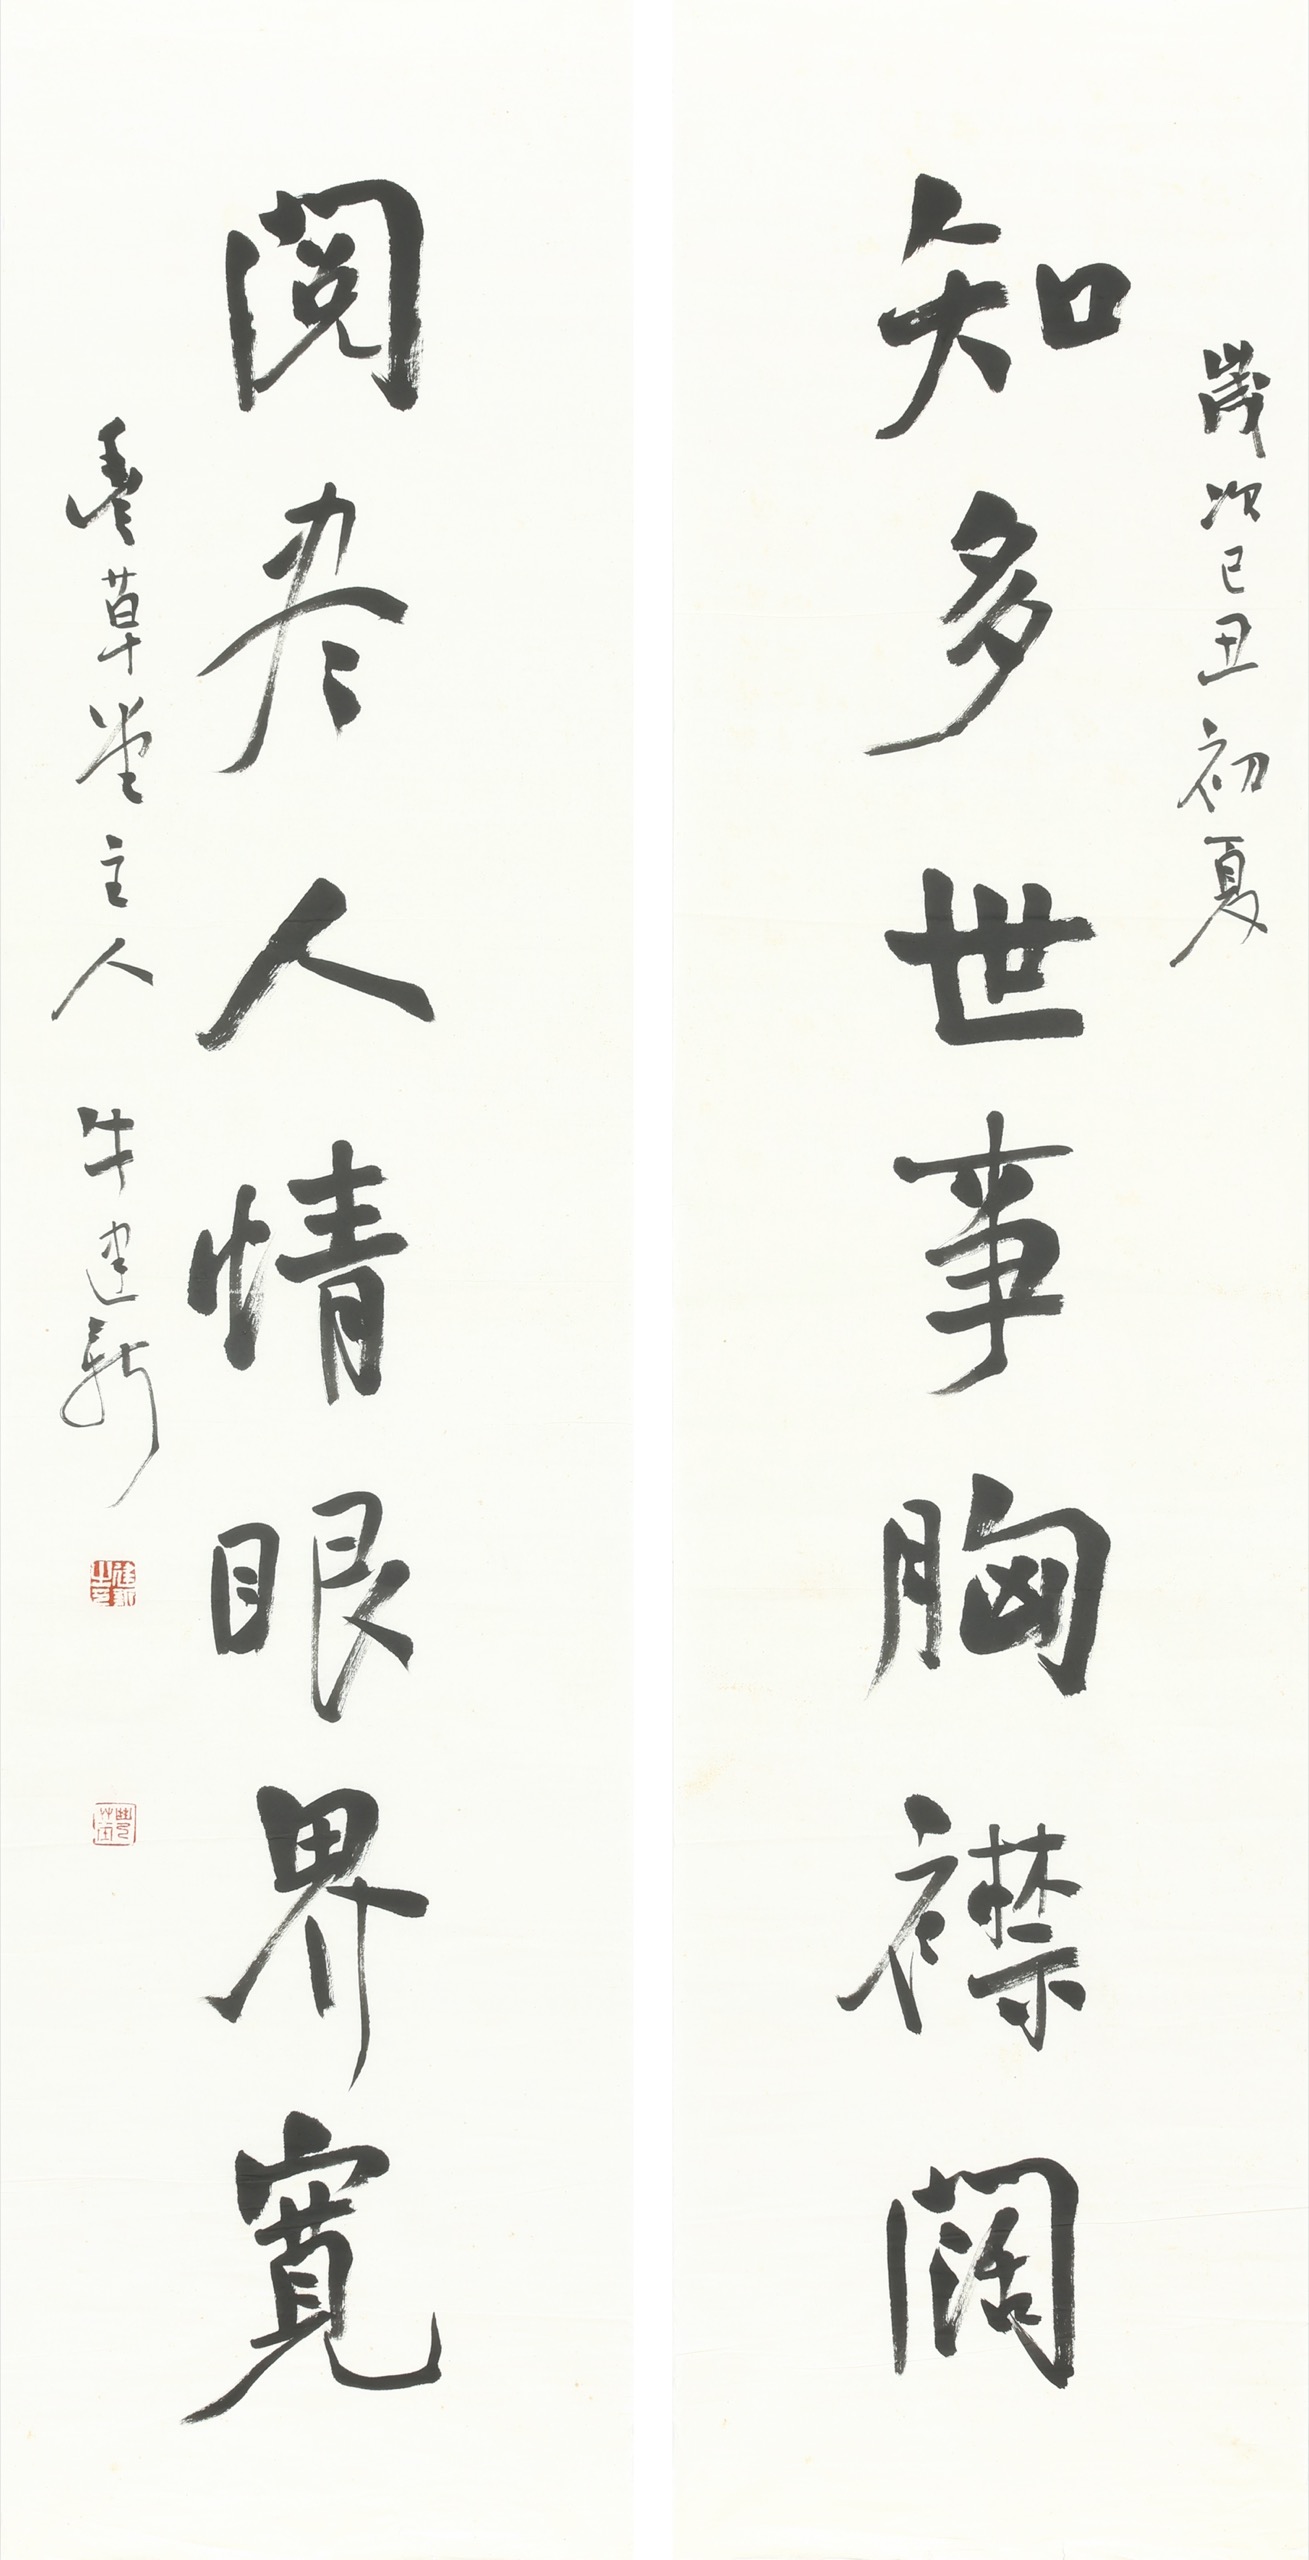 歲次己丑初夏
知多世事胸襟闊
閱尽人情眼界寬
草堂主人 牛建新
建新之印